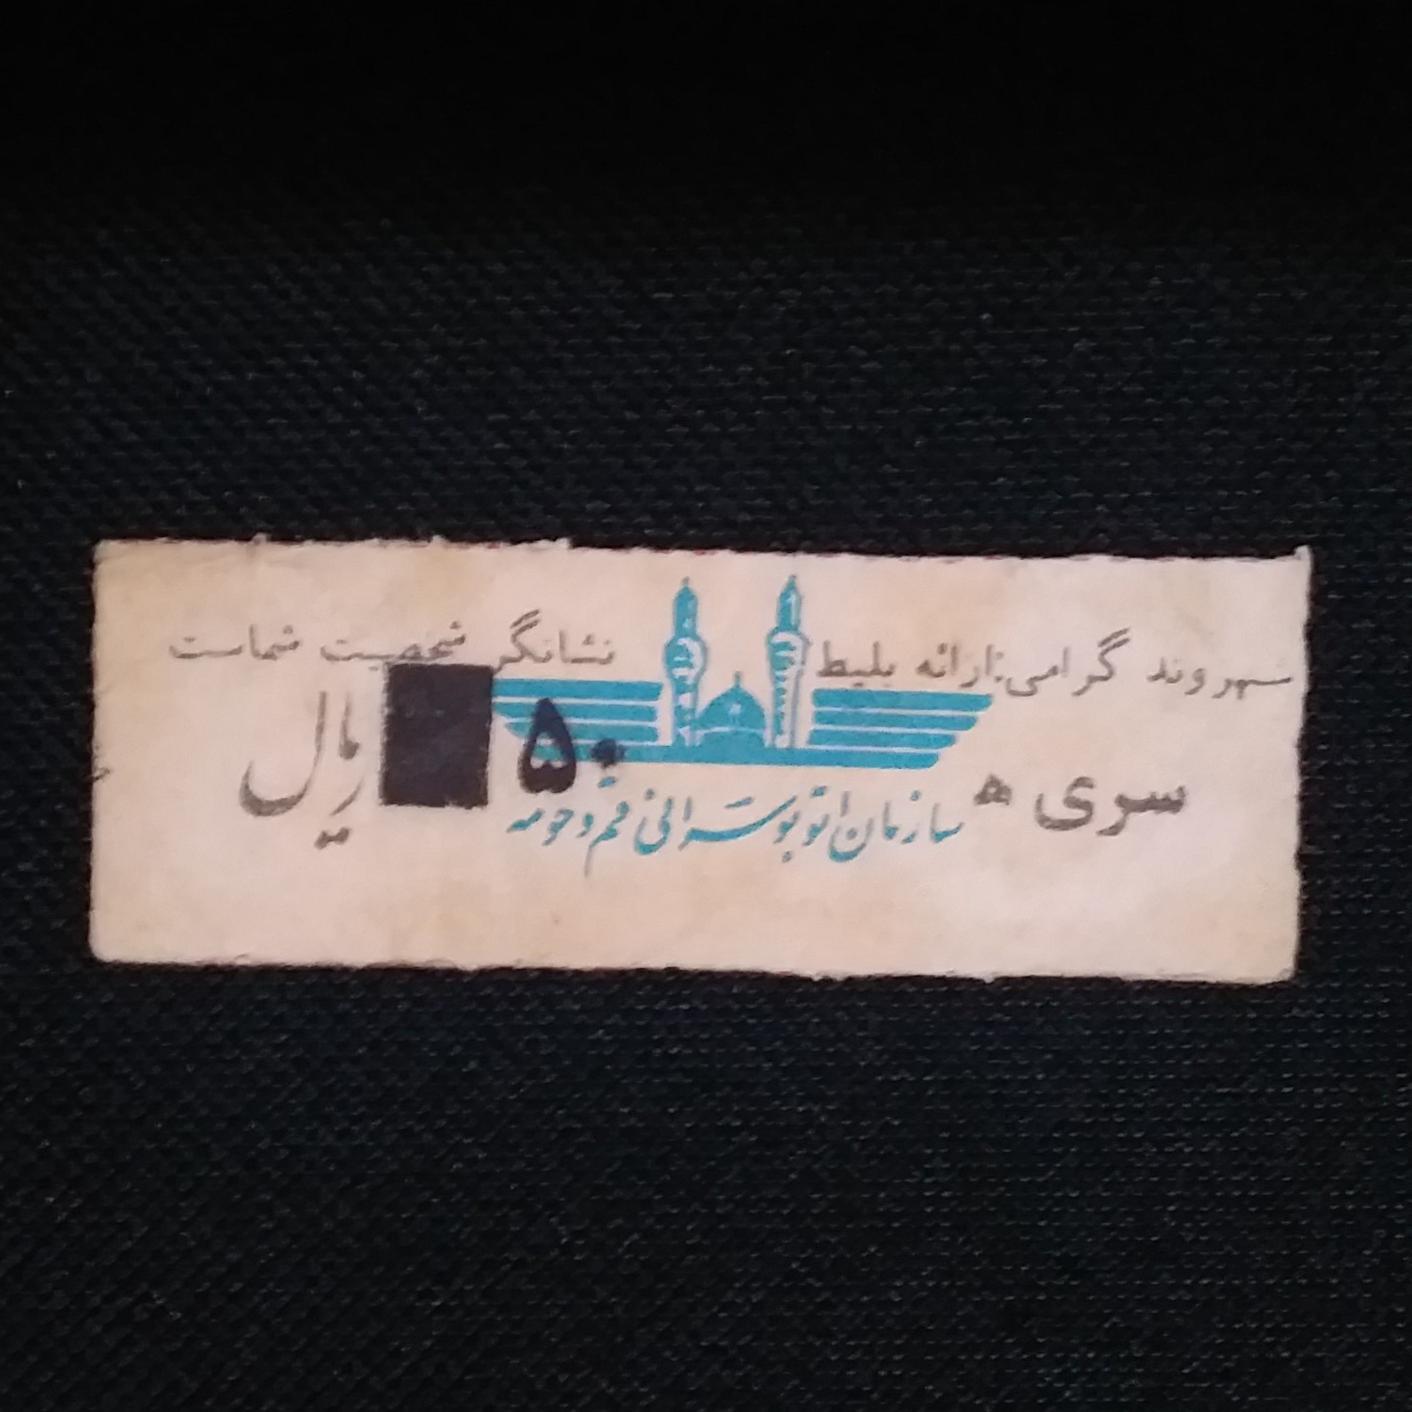 شهروند گرامی: ارائه بلیط نشانگر شخصیت شماست
سری ه ۵۰ ریال
سازمان اتوبوسرانی قم و حومه